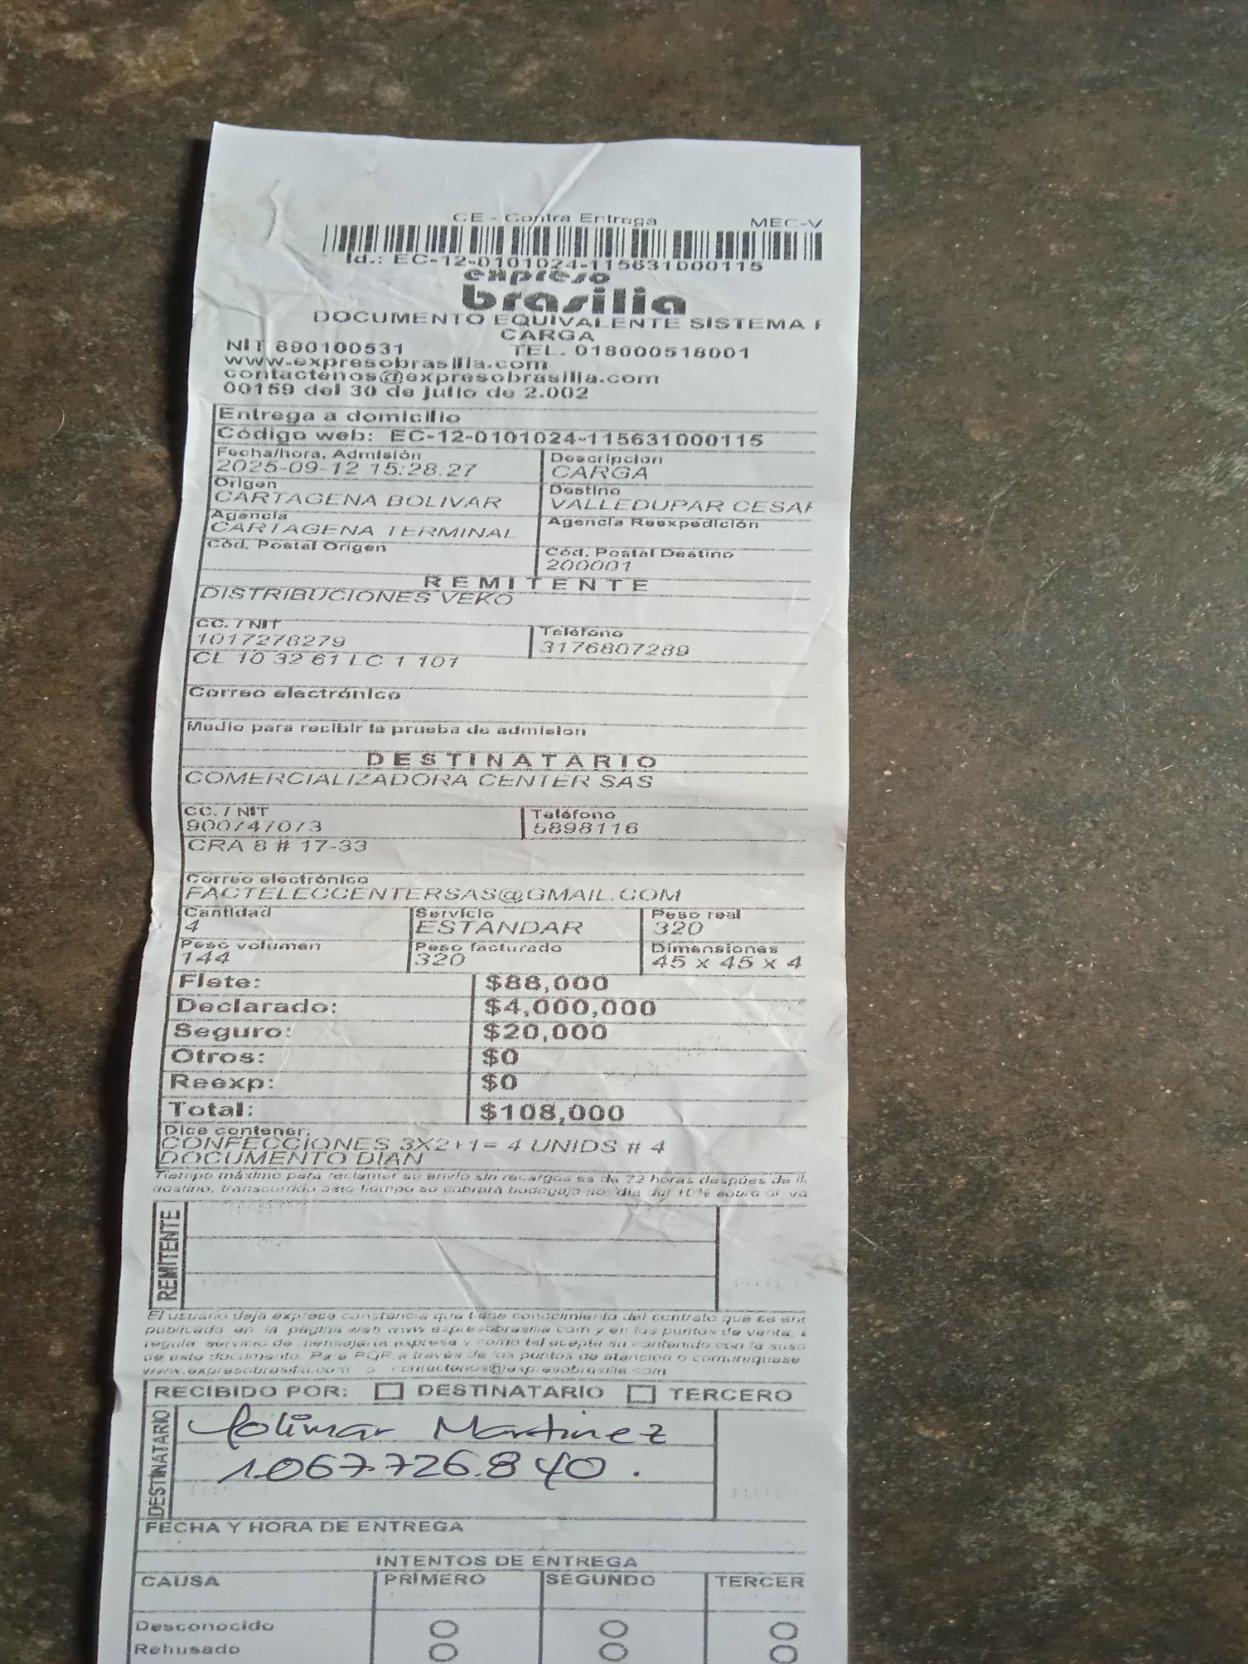 CE - Contra Entrega MEC-V
Id.: EC-12-0101024-115631000115
expreso
brasilia
DOCUMENTO EQUIVALENTE SISTEMA
CARGA
NIT 890100531 TEL. 018000518001
www.expresobrasilia.com
contactenos@expresobrasilia.com
00159 del 30 de julio de 2.002
Entrega a domicilio
Código web: EC-12-0101024-115631000115
Fecha/hora, Admisión Descripcion
2025-09-12 15:28:27 CARGA
Origen Destino
CARTAGENA BOLIVAR VALLEDUPAR CESAR
Agencia Agencia Reexpedición
CARTAGENA TERMINAL
Cód. Postal Origen Cód. Postal Destino
200001
REMITENTE
DISTRIBUCIONES VEKO
CC. / NIT Teléfono
1017276279 3176807289
CL 10 32 61 LC 1 101
Correo electrónico
Medio para recibir la prueba de admision
DESTINATARIO
COMERCIALIZADORA CENTER SAS
CC. / NIT Teléfono
900747073 5898116
CRA 8 # 17-33
Correo electrónico
FACTELECCENTERSAS@GMAIL.COM
Cantidad Servicio Peso real
4 ESTANDAR 320
Peso volumen Peso facturado Dimensiones
144 320 45 x 45 x 4
Flete: $88,000
Declarado: $4,000,000
Seguro: $20,000
Otros: $0
Reexp: $0
Total: $108,000
Dice contener:
CONFECCIONES 3X2+1= 4 UNIDS # 4
DOCUMENTO DIAN
Tiempo máximo para reclamar su envío sin recargos es de 72 horas despúes de
destino, transcurrido este tiempo se cobrará bodegaje por día del 10% sobre el
REMITENTE
El usuario deja expresa constancia que tiene conocimiento del contrato que se
publicado en la página web www.expresobrasilia.com y en los puntos de venta,
regula servicio de mensajería expresa y como tal acepta su contenido con la
de este documento. Para PQR a través de los puntos de atención o comuníquese
www.expresobrasilia.com o contactenos@expresobrasilia.com
RECIBIDO POR: DESTINATARIO TERCERO
DESTINATARIO
Yolimar Martinez
1.067.726.840.
FECHA Y HORA DE ENTREGA
INTENTOS DE ENTREGA
CAUSA PRIMERO SEGUNDO TERCER
Desconocido
Rehusado